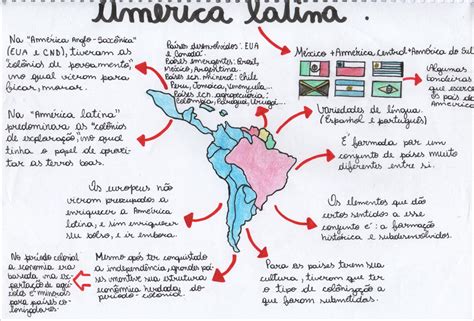 América latina.
Na "América Anglo-Saxônica"
(EUA e CND), tiveram as
"colônias de povoamento",
no qual vieram para
ficar, morar.
Países desenvolvidos: EUA
e Canadá.
Países emergentes: Brasil,
México, Argentina.
Países ec. mineral: Chile
Peru, Venezuela.
Países ec.
Colômbia, Paraguai, Uruguai...
México + América Central + América do Sul
Algumas
bandeiras
que
os países am
Variedades de língua.
(Espanhol e português)
Na "América latina"
predominava as "colônias
de exploração", no qual
tinha o papel de aprovei
tar as terras boas.
É formada por um
conjunto de países muito
diferentes entre si.
Os europeus não
vieram preocupados a
enriquecer a América
latina, e sim enriquecer
seu bolso, e ir embora.
Os elementos que dão
certos sentidos a esse
conjunto é: a formação
histórica e subdesenvolvidos.
No período colonial
a economia era
baseada na ex-
portação de agrí
colas e minerais
para países co-
lonizadores.
Mesmo após ter conquistado
a independência, grandes paí
ses mantive seu estrutura
econômica herdada do
período-colonial.
Para os países terem sua
cultura, tiveram que ter
o tipo de colonização a
que foram submetidos.